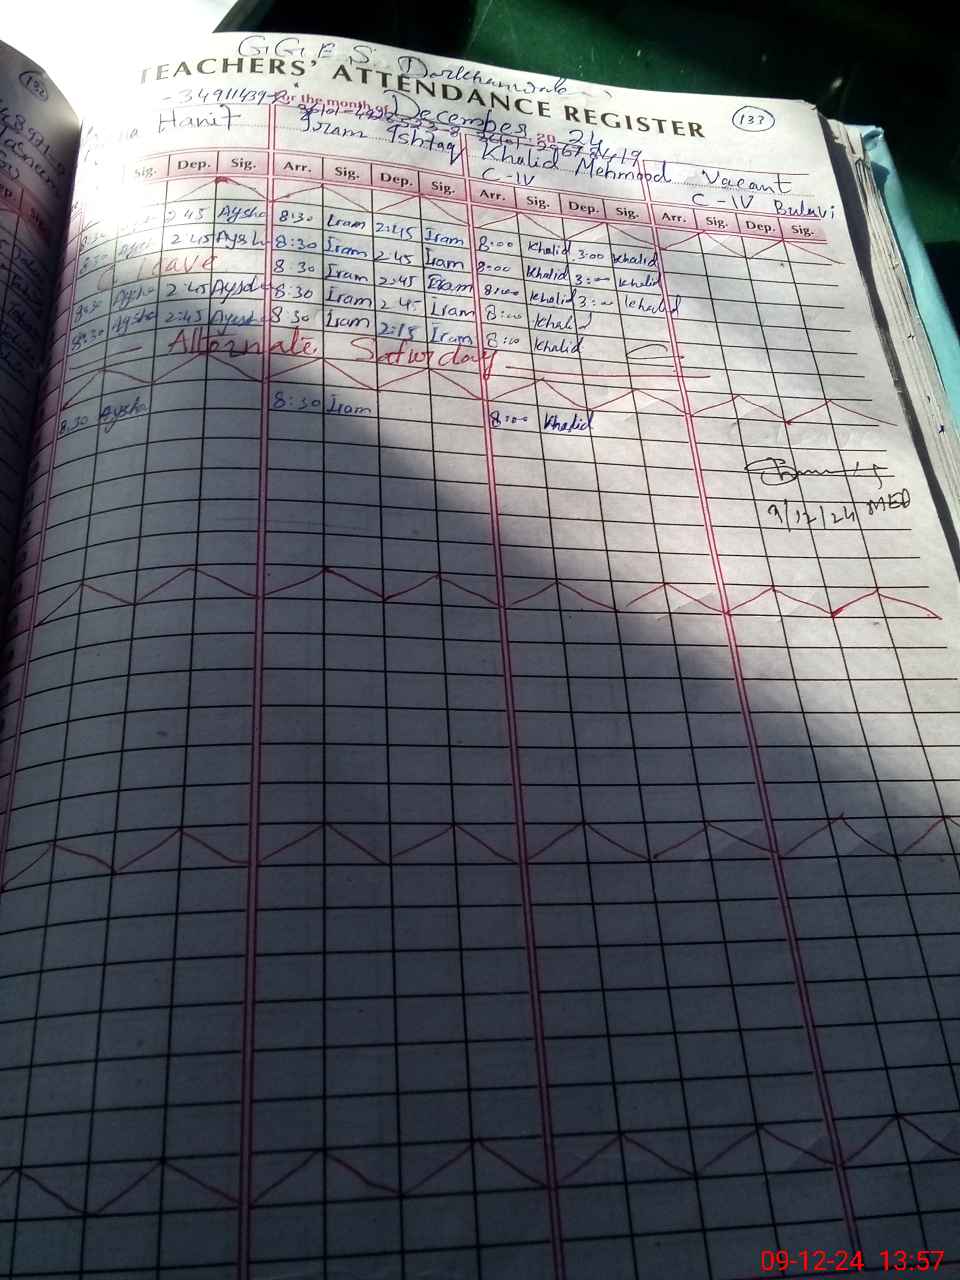 G.G.E.S
TEACHERS' ATTENDANCE REGISTER
133
For the month of December 20 24
Hanif Iram Ishtaq Khalid Mehmood Vacant
C-IV C-IV
Sig. Dep. Sig. Arr. Sig. Dep. Sig. Arr. Sig. Dep. Sig. Arr. Sig. Dep. Sig.
2:45 Aysha 8:30 Iram 2:45 Iram 8:00 Khalid 3:00 Khalid
8:30 2:45 Aysha 8:30 Iram 2:45 Iram 8:00 Khalid 3:00 Khalid
Leave 8:30 Iram 2:45 Iram 8:00 Khalid 3:00 Khalid
8:30 Aysha 2:45 Aysha 8:30 Iram 2:45 Iram 8:00 Khalid
8:30 Aysha 2:45 Aysha 8:30 Iram 2:15 Iram 8:00 Khalid
Alternate Saturday
8:30 Aysha 8:30 Iram 8:00 Khalid
9/12/24 MEO
09-12-24 13:57